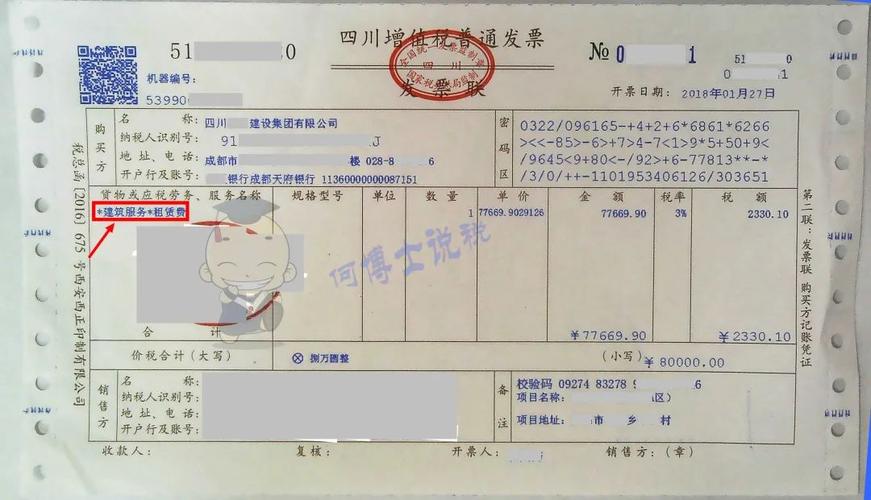 四川增值税普通发票
51 0
№ 0 1
51 0
0 1
机器编号:
53990
全国统一发票监制章
四川
国家税务局监制
发票联
开票日期: 2018年01月27日
购买方
名称: 四川 建设集团有限公司
纳税人识别号: 91 J
地址、电话: 成都市 楼 028-8 6
开户行及账号: 银行成都天府银行 11360000000087151
密码区
0322/096165-+4+2+6*6861*6266
><<-85>-6>+7>4-7<1>9*5+50+9<
/9645<9+80<-/92>+6-77813**-*
/3/0/++-1101953406126/303651
货物或应税劳务、服务名称 规格型号 单位 数量 单价 金额 税率 税额
*建筑服务*租赁费 1 77669.9029126 77669.90 3% 2330.10
何博士说税
合计 ¥77669.90 ¥2330.10
价税合计(大写) ⊗ 捌万圆整 (小写) ¥ 80000.00
销售方
名称:
纳税人识别号:
地址、电话:
开户行及账号:
备注
校验码 09274 83278 9 6
项目名称: 区)
项目地址: 市 乡 村
收款人: 复核: 开票人: 销售方:(章)
税总函〔2016〕675号西安西正印制有限公司
第二联:发票联 购买方记账凭证